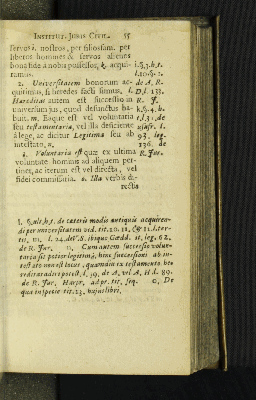 INSTITUT. JURIS CIVIL. 55
servos i. nostros, per filiosfam. per
liberos homines & servos alienos
bona fide a nobis possessos, k. acqui-
ramus.
2. Universitatem bonorum ac-
quirimus, si hæredes facti simus, l.
Hæreditas autem est successio in
universum jus, quod defunctus ha-
buit. m. Eaque est vel voluntaria
seu testamentaria, vel illa deficiente
à lege, ac dicitur Legitima seu ab
intestato, n.
3. Voluntaria est quæ ex ultima
voluntate hominis ad aliquem per-
tinet, ac iterum est vel directa, vel
fidei commissaria. o. Illa verbis di-
recta
i. §.3. h. t.
l.10. §. 2.
de A. R.
D. l. 131.
R. J.
k. §. 4. h.
t. l. 3
usufr. l.
93. leg.
136. de
R. Jur.
l. §. ult. h. t. de cæteris modis antiquis acquiren-
di per universitatem vid. tit. 10. 11. & 12. l. ter-
tii. m. l. 24. de V. S. ibique Gœdd. it. leg. 62.
de R. Jur. n. Cum autem successio volun-
taria sit potior legitimâ, hinc successioni ab in-
testato non est locus, quamdiu ex testamento hæ-
reditas adiri potest. l. 39. de A. vel A. H. l. 89.
de R. Jur. Harpr. ad pr. tit. seq. o. De
qua inspice tit. 23. hujus libri.